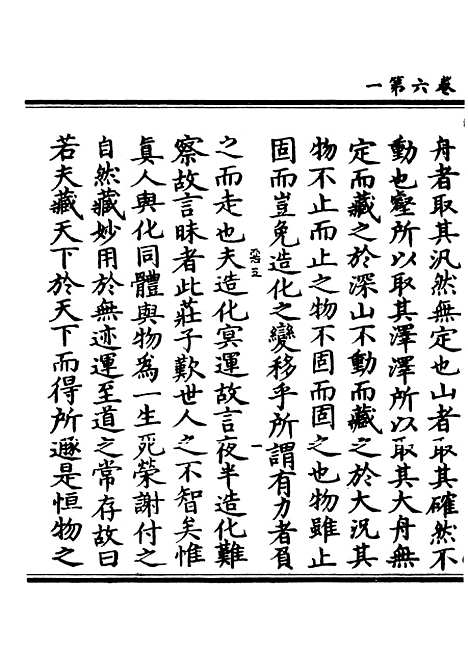 卷六第一
舟者取其汎然無定也山者取其確然不
動也壑所以取其澤澤所以取其大舟無
定而藏之於深山不動而藏之於大況其
物不止而止之物不固而固之也物雖止
固而豈免造化之變移乎所謂有力者負
之而走也夫造化冥運故言夜半造化難
察故言昧者此莊子歎世人之不智矣惟
真人與化同體與物為一生死榮謝付之
自然藏妙用於無迹運至道之常存故曰
若夫藏天下於天下而得所遯是恒物之